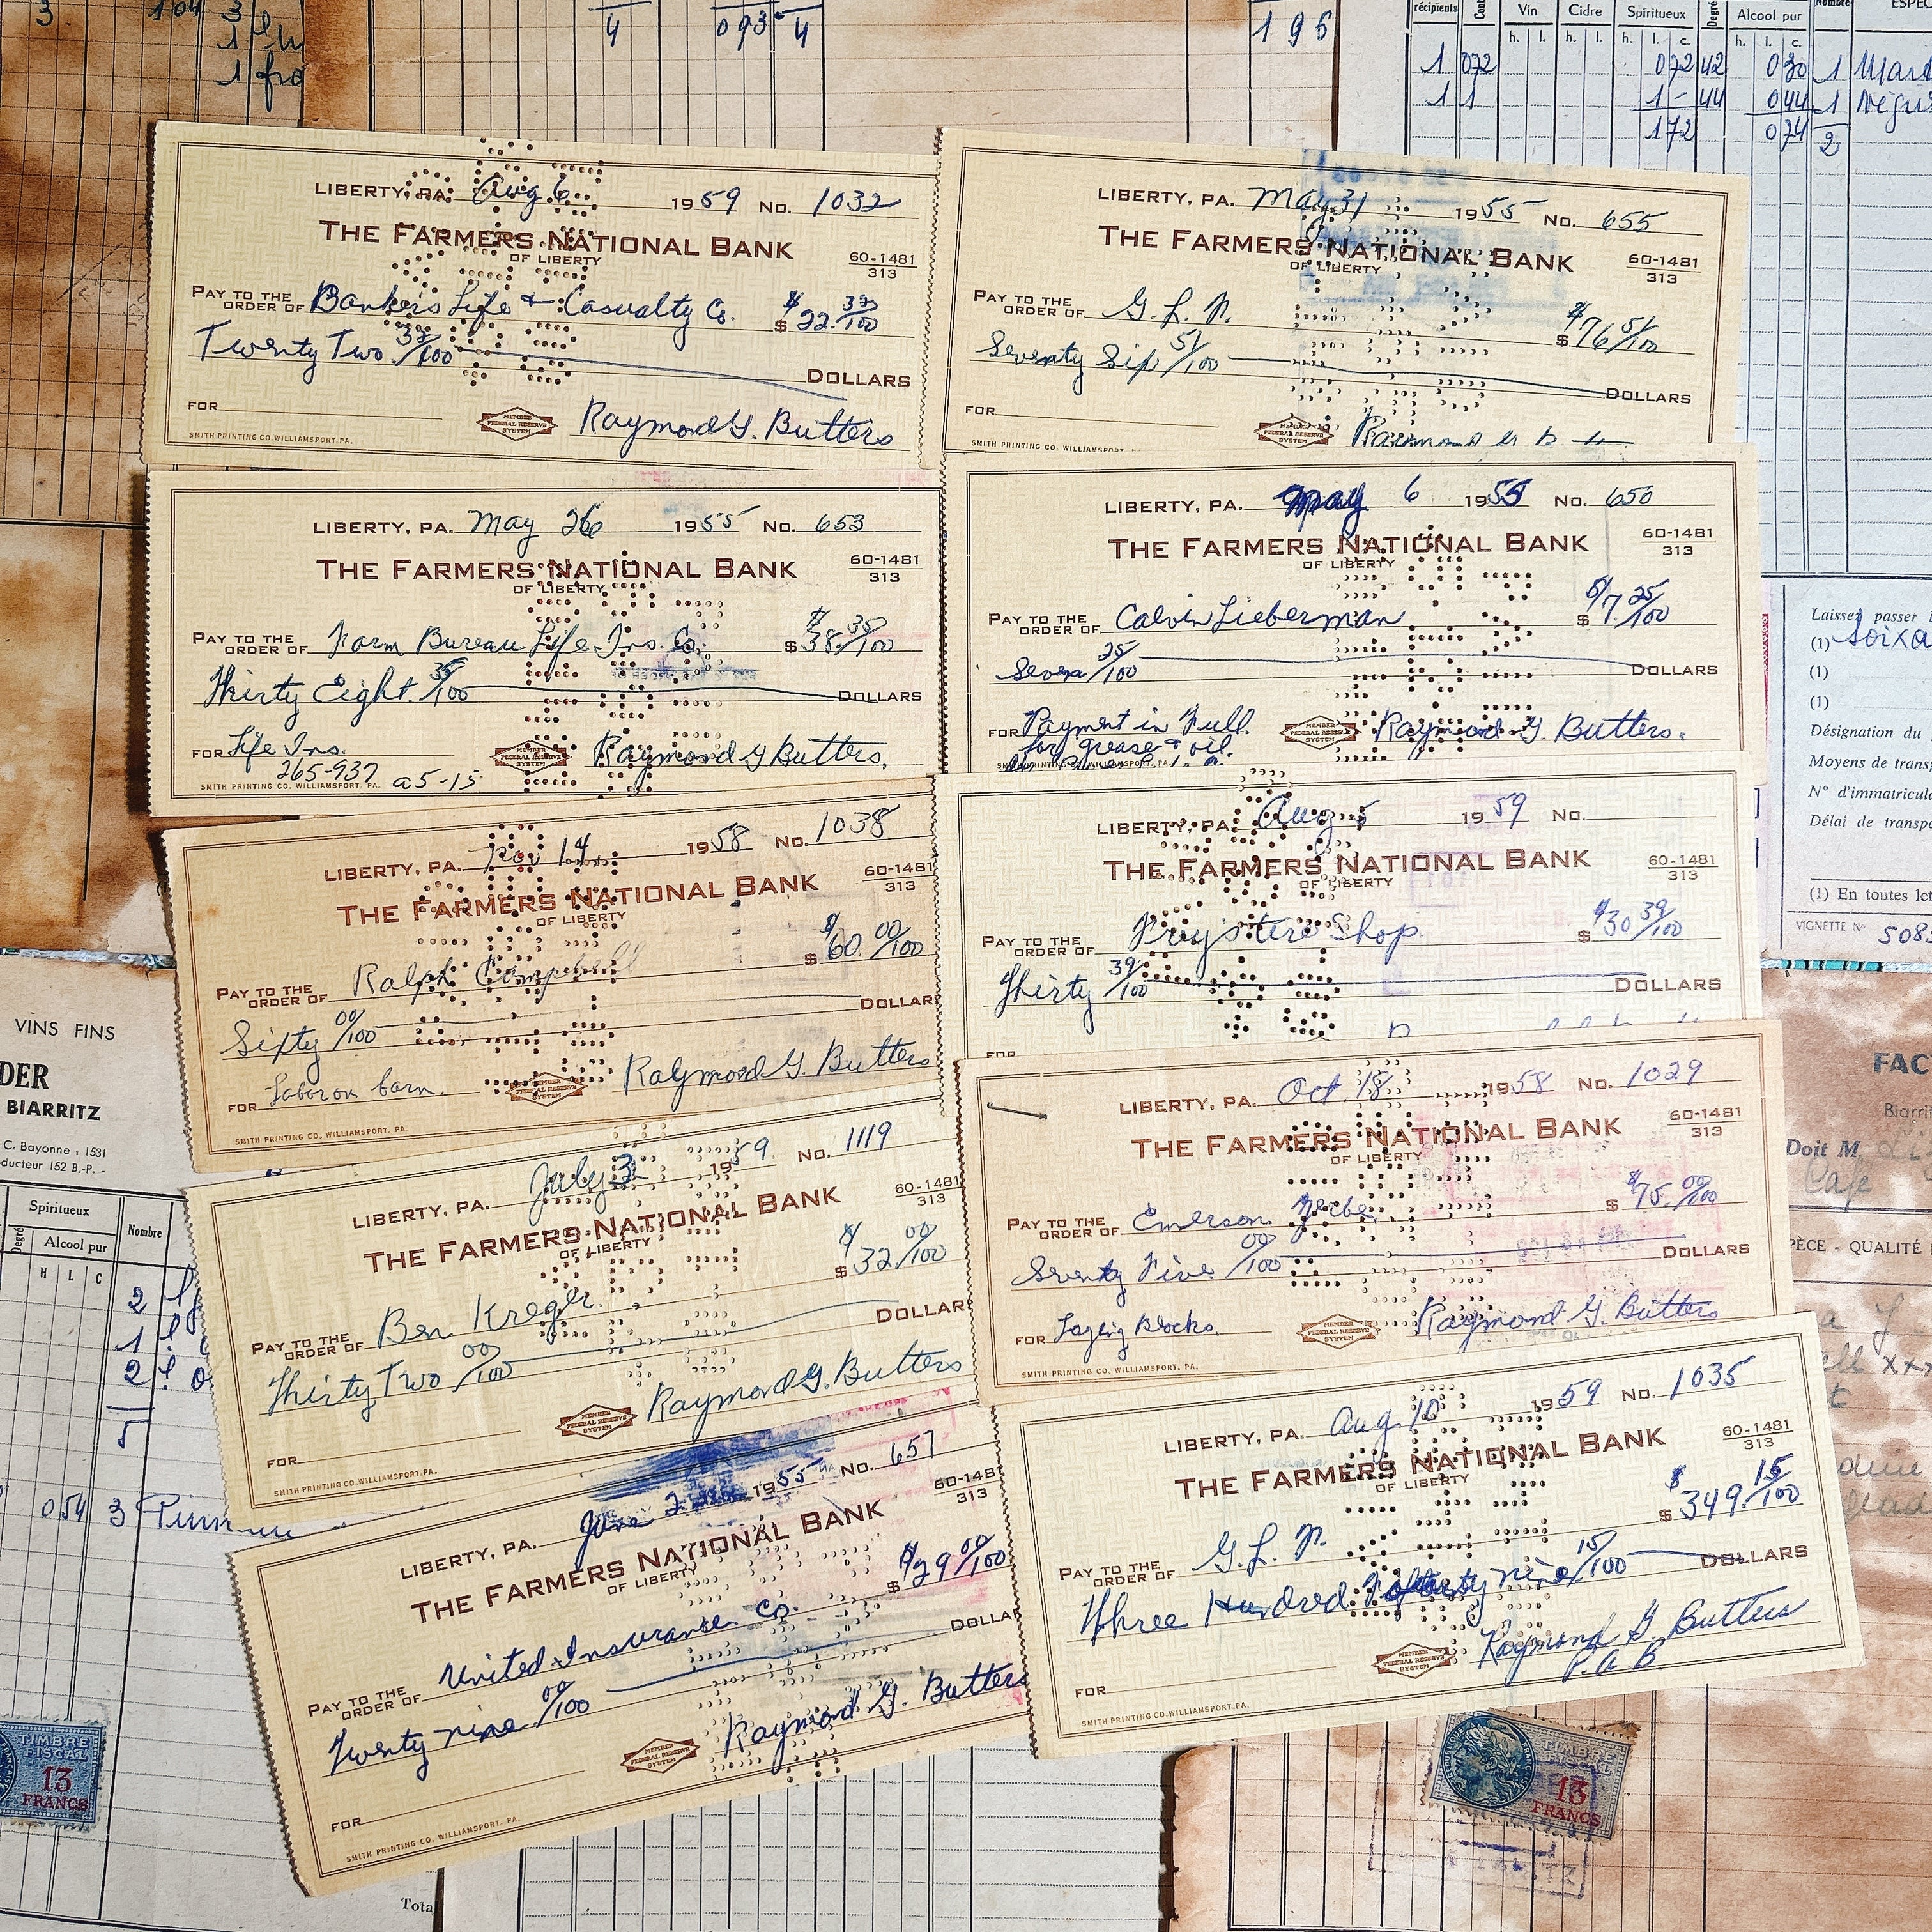 3 104 3
1
1 fra
4 093 4
196
récipients Vin Cidre Spiritueux Degré Alcool pur Nombre
h. l. h. l. h. l. c. h. l. c.
1 072 072 42 030 1
1 1 1 - 44 044 1
172 074 2
LIBERTY, PA. Aug 6 1959 No. 1032
THE FARMERS NATIONAL BANK
OF LIBERTY
60-1481
313
PAY TO THE
ORDER OF Bankers Life & Casualty Co. $ $22 33/100
Twenty Two 33/100 DOLLARS
FOR
MEMBER
FEDERAL RESERVE
SYSTEM
Raymond G. Butters
SMITH PRINTING CO. WILLIAMSPORT, PA.
LIBERTY, PA. May 31 1955 No. 655
THE FARMERS NATIONAL BANK
OF LIBERTY
60-1481
313
PAY TO THE
ORDER OF G. L. F. $ $76 51/100
Seventy Six 51/100 DOLLARS
FOR
MEMBER
FEDERAL RESERVE
SYSTEM
Raymond
LIBERTY, PA. May 26 1955 No. 653
THE FARMERS NATIONAL BANK
OF LIBERTY
60-1481
313
PAY TO THE
ORDER OF Farm Bureau Life Ins. Co. $ $38. 35/100
Thirty Eight. 35/100 DOLLARS
FOR Life Ins.
265-937 a5-15
MEMBER
FEDERAL RESERVE
SYSTEM
Raymond G Butters.
SMITH PRINTING CO. WILLIAMSPORT, PA.
LIBERTY, PA. May 6 1955 No. 650
THE FARMERS NATIONAL BANK
OF LIBERTY
60-1481
313
PAY TO THE
ORDER OF Calvin Lieberman $ $7. 25/100
Seven 25/100 DOLLARS
FOR Payment in Full.
for grease & oil.
MEMBER
FEDERAL RESERVE
SYSTEM
Raymond G. Butters.
LIBERTY, PA. Nov 14 1958 No. 1038
THE FARMERS NATIONAL BANK
OF LIBERTY
60-1481
313
PAY TO THE
ORDER OF Ralph Campbell $ $60. 00/100
Sixty 00/100 DOLLARS
FOR Labor on barn.
MEMBER
FEDERAL RESERVE
SYSTEM
Raymond G. Butters
SMITH PRINTING CO. WILLIAMSPORT, PA.
LIBERTY, PA. Aug 5 1959 No.
THE FARMERS NATIONAL BANK
OF LIBERTY
60-1481
313
PAY TO THE
ORDER OF Shop $ $30 39/100
Thirty 39/100 DOLLARS
FOR
LIBERTY, PA. July 3 1959. No. 1119
THE FARMERS NATIONAL BANK
OF LIBERTY
60-1481
313
PAY TO THE
ORDER OF Ben Kreger. $ $32 00/100
Thirty Two 00/100 DOLLAR
FOR
MEMBER
FEDERAL RESERVE
SYSTEM
Raymond G. Butters
SMITH PRINTING CO. WILLIAMSPORT, PA.
LIBERTY, PA. Oct 18 1958 No. 1029
THE FARMERS NATIONAL BANK
OF LIBERTY
60-1481
313
PAY TO THE
ORDER OF Emerson $ $75. 00/100
Seventy Five. 00/100 DOLLARS
FOR Blocks.
MEMBER
FEDERAL RESERVE
SYSTEM
Raymond G. Butters
SMITH PRINTING CO. WILLIAMSPORT, PA.
LIBERTY, PA. June 2 1955 No. 657
THE FARMERS NATIONAL BANK
OF LIBERTY
60-1481
313
PAY TO THE
ORDER OF United Insurance Co. $ $29 00/100
Twenty nine 00/100 DOLLA
FOR
MEMBER
FEDERAL RESERVE
SYSTEM
Raymond G. Butters
SMITH PRINTING CO. WILLIAMSPORT, PA.
LIBERTY, PA. Aug 10 1959 No. 1035
THE FARMERS NATIONAL BANK
OF LIBERTY
60-1481
313
PAY TO THE
ORDER OF G. L. F. $ $349. 15/100
Three Hundred Forty nine 15/100 DOLLARS
FOR
MEMBER
FEDERAL RESERVE
SYSTEM
Raymond G. Butters
P. A. B
SMITH PRINTING CO. WILLIAMSPORT, PA.
Laissez passer
(1) soixa
(1)
(1)
Désignation du
Moyens de trans
N° d'immatricula
Délai de transpo
(1) En toutes let
VIGNETTE N° 508
VINS FINS
DER
BIARRITZ
C. Bayonne : 1531
ducteur 152 B.-P. -
Spiritueux Nombre
Degré Alcool pur
H L C
2
1
2
5
054 3
FAC
Biarrit
Doit M
Cafe
PÈCE - QUALITÉ
TIMBRE
FISCAL
13
FRANCS
Tota
TIMBRE
FISCAL
13
FRANCS